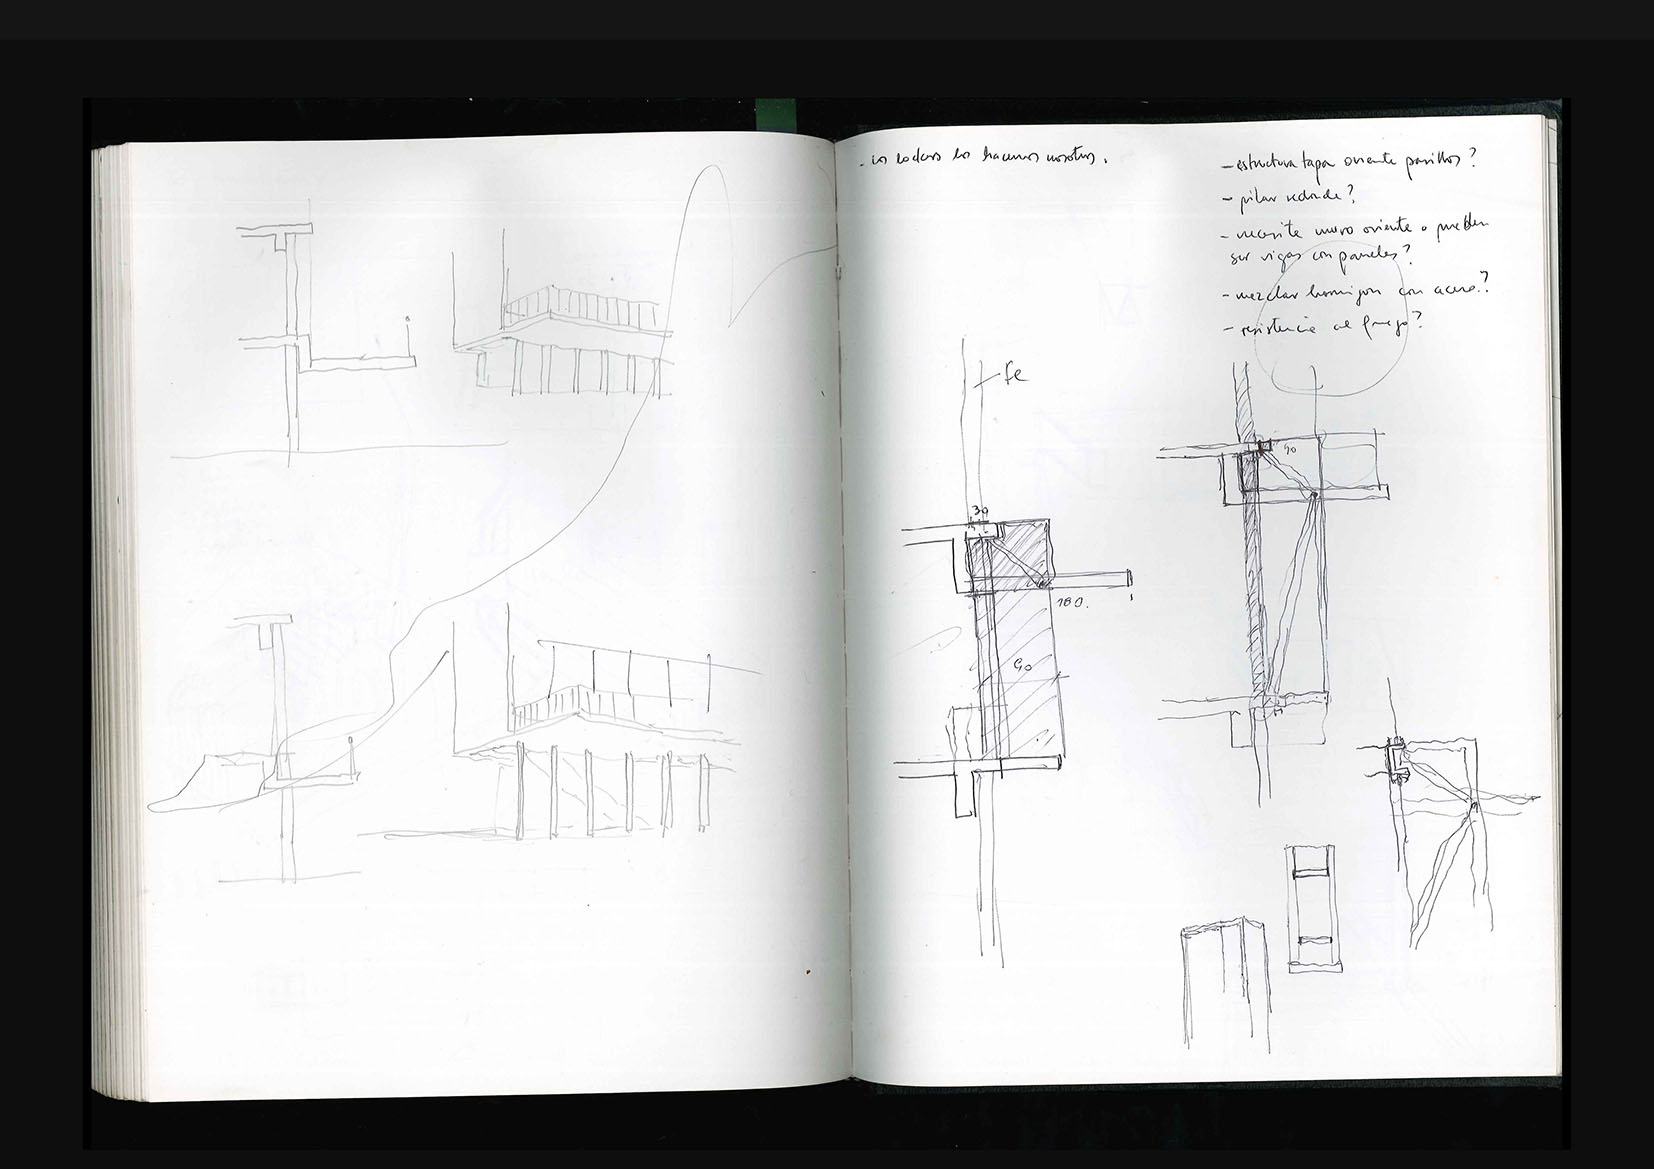 - los hacemos nosotros.
- estructura tapa oriente pasillos?
- pilar redondo?
- necesita muro oriente o pueden
ser vigas con paneles?
- mezclar hormigon con acero?
- resistencia al fuego?
fe
30
180.
90
90